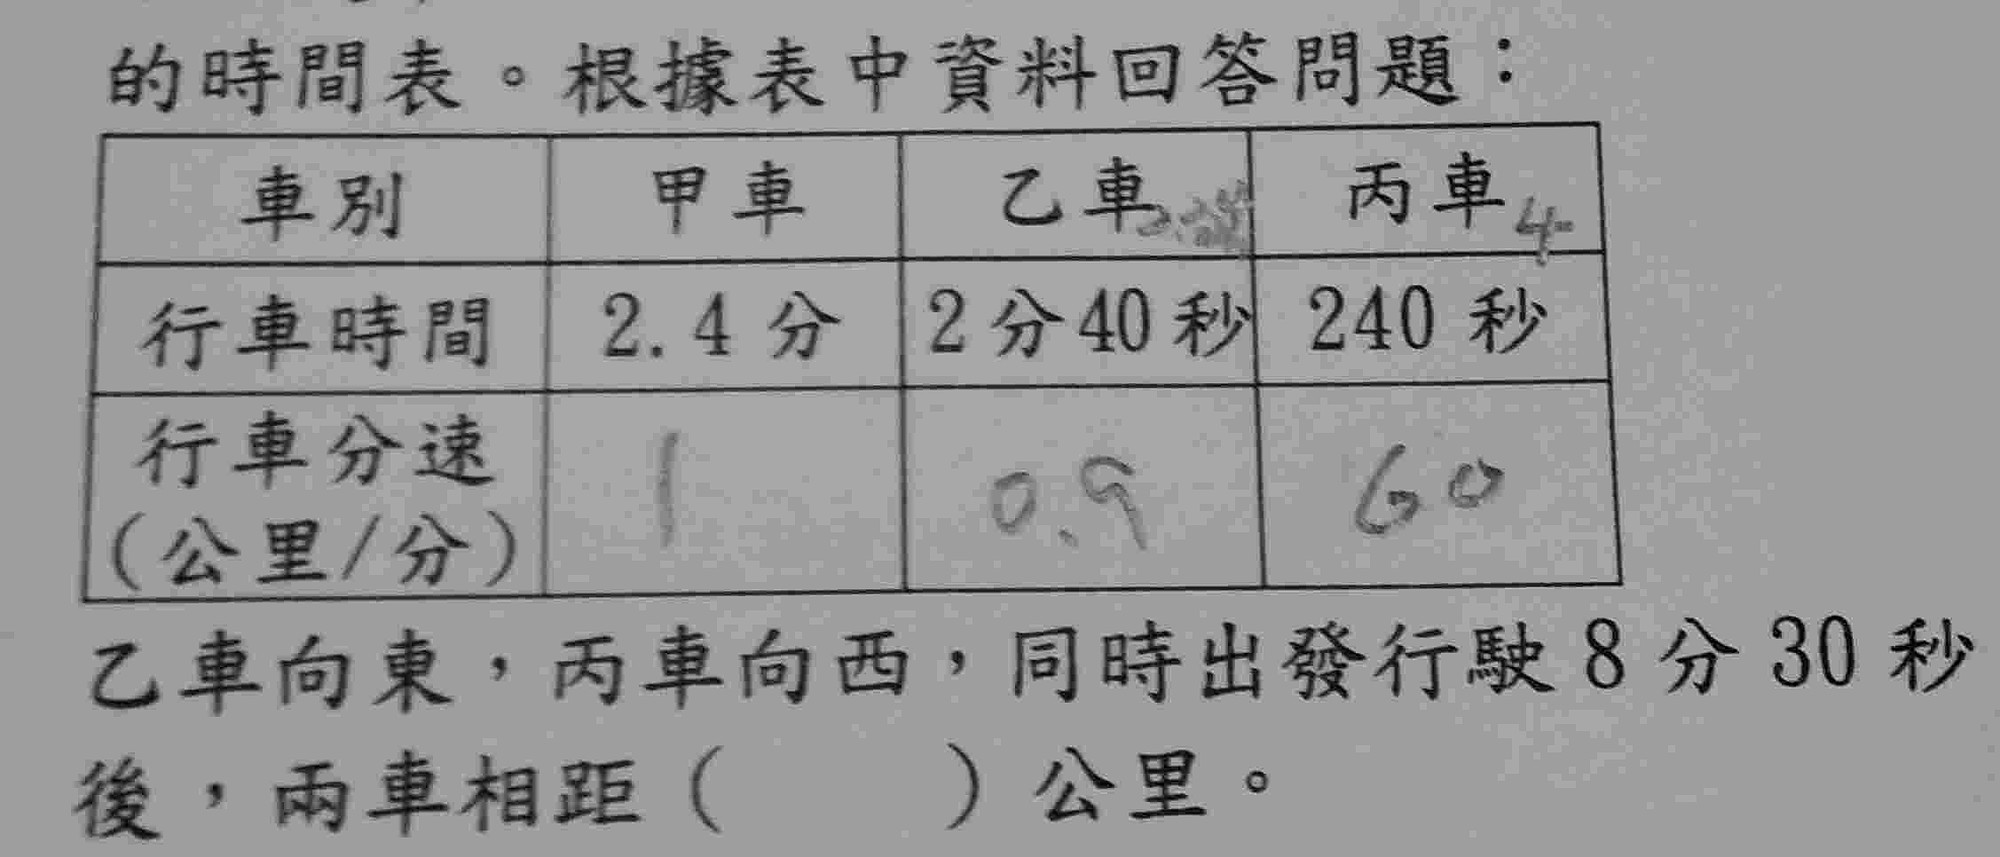 的時間表。根據表中資料回答問題：
車別 甲車 乙車 丙車 4
行車時間 2.4分 2分40秒 240秒
行車分速 1 0.9 60
(公里/分)
乙車向東，丙車向西，同時出發行駛8分30秒
後，兩車相距（　　）公里。